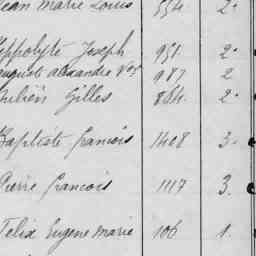 Jean Marie Louis 554. 2.
Hippolyte Joseph 951. 2.
auguste alexandre Vor 987 2
Julien Gilles 864. 2.
Baptiste francois 1408 3.
Pierre francois 1117 3.
Felix Eugene marie 106 1.